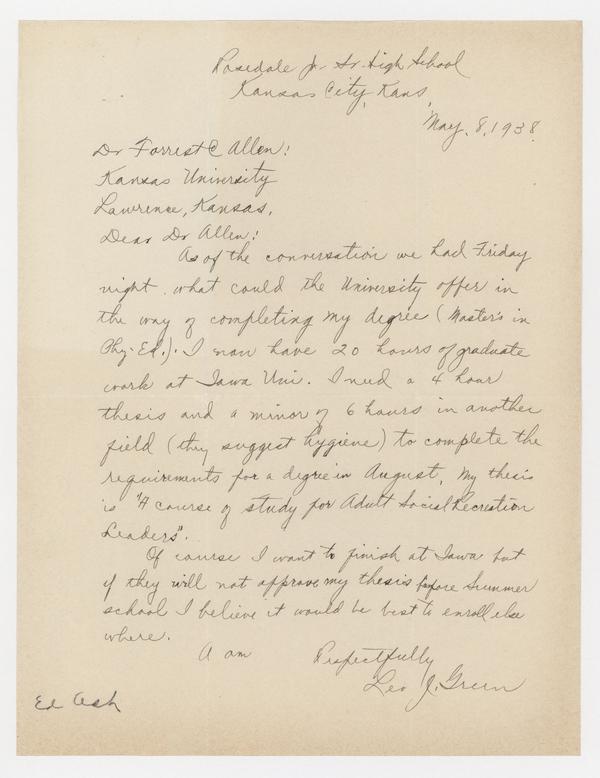 Rosedale Jr. Sr. High School
Kansas City, Kans,
May. 8, 1938.
Dr Forrest C Allen:
Kansas University
Lawrence, Kansas,
Dear Dr Allen:
As of the conversation we had Friday
night. what could the University offer in
the way of completing my degree (Master's in
Phy. Ed.). I now have 20 hours of graduate
work at Iowa Uni. I need a 4 hour
thesis and a minor of 6 hours in another
field (they suggest hygiene) to complete the
requirements for a degree in August, My thesis
is "A course of study for Adult Social Recreation
Leaders".
Of course I want to finish at Iowa but
if they will not approve my thesis before Summer
school I believe it would be best to enroll else
where.
I am Respectfully
Leo J. Green
Ed Ash